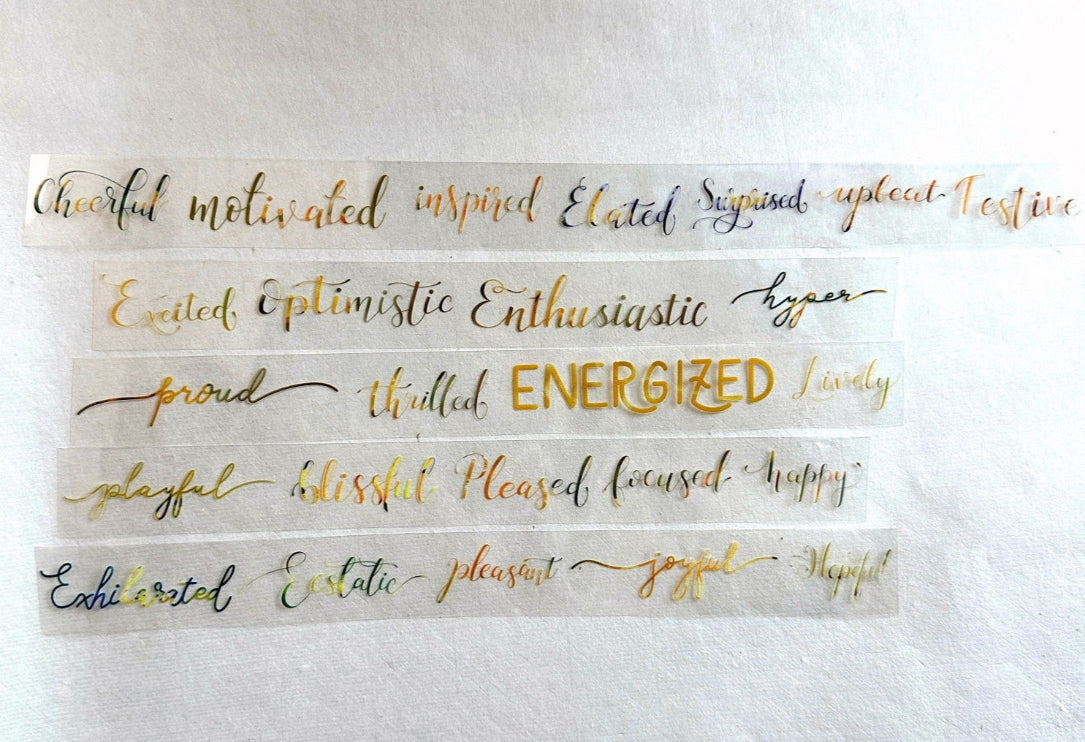 Cheerful motivated inspired Elated Surprised upbeat Festive
Excited Optimistic Enthusiastic hyper
proud thrilled ENERGIZED Lively
playful blissful Pleased focused happy
Exhilarated Ecstatic pleasant joyful Hopeful